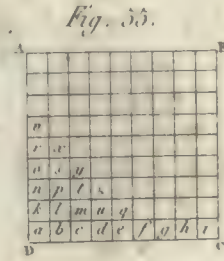 Fig. 55.
A B
n
r x
o s y
n p t s
k l m u q
a b c d e f g h i
D C